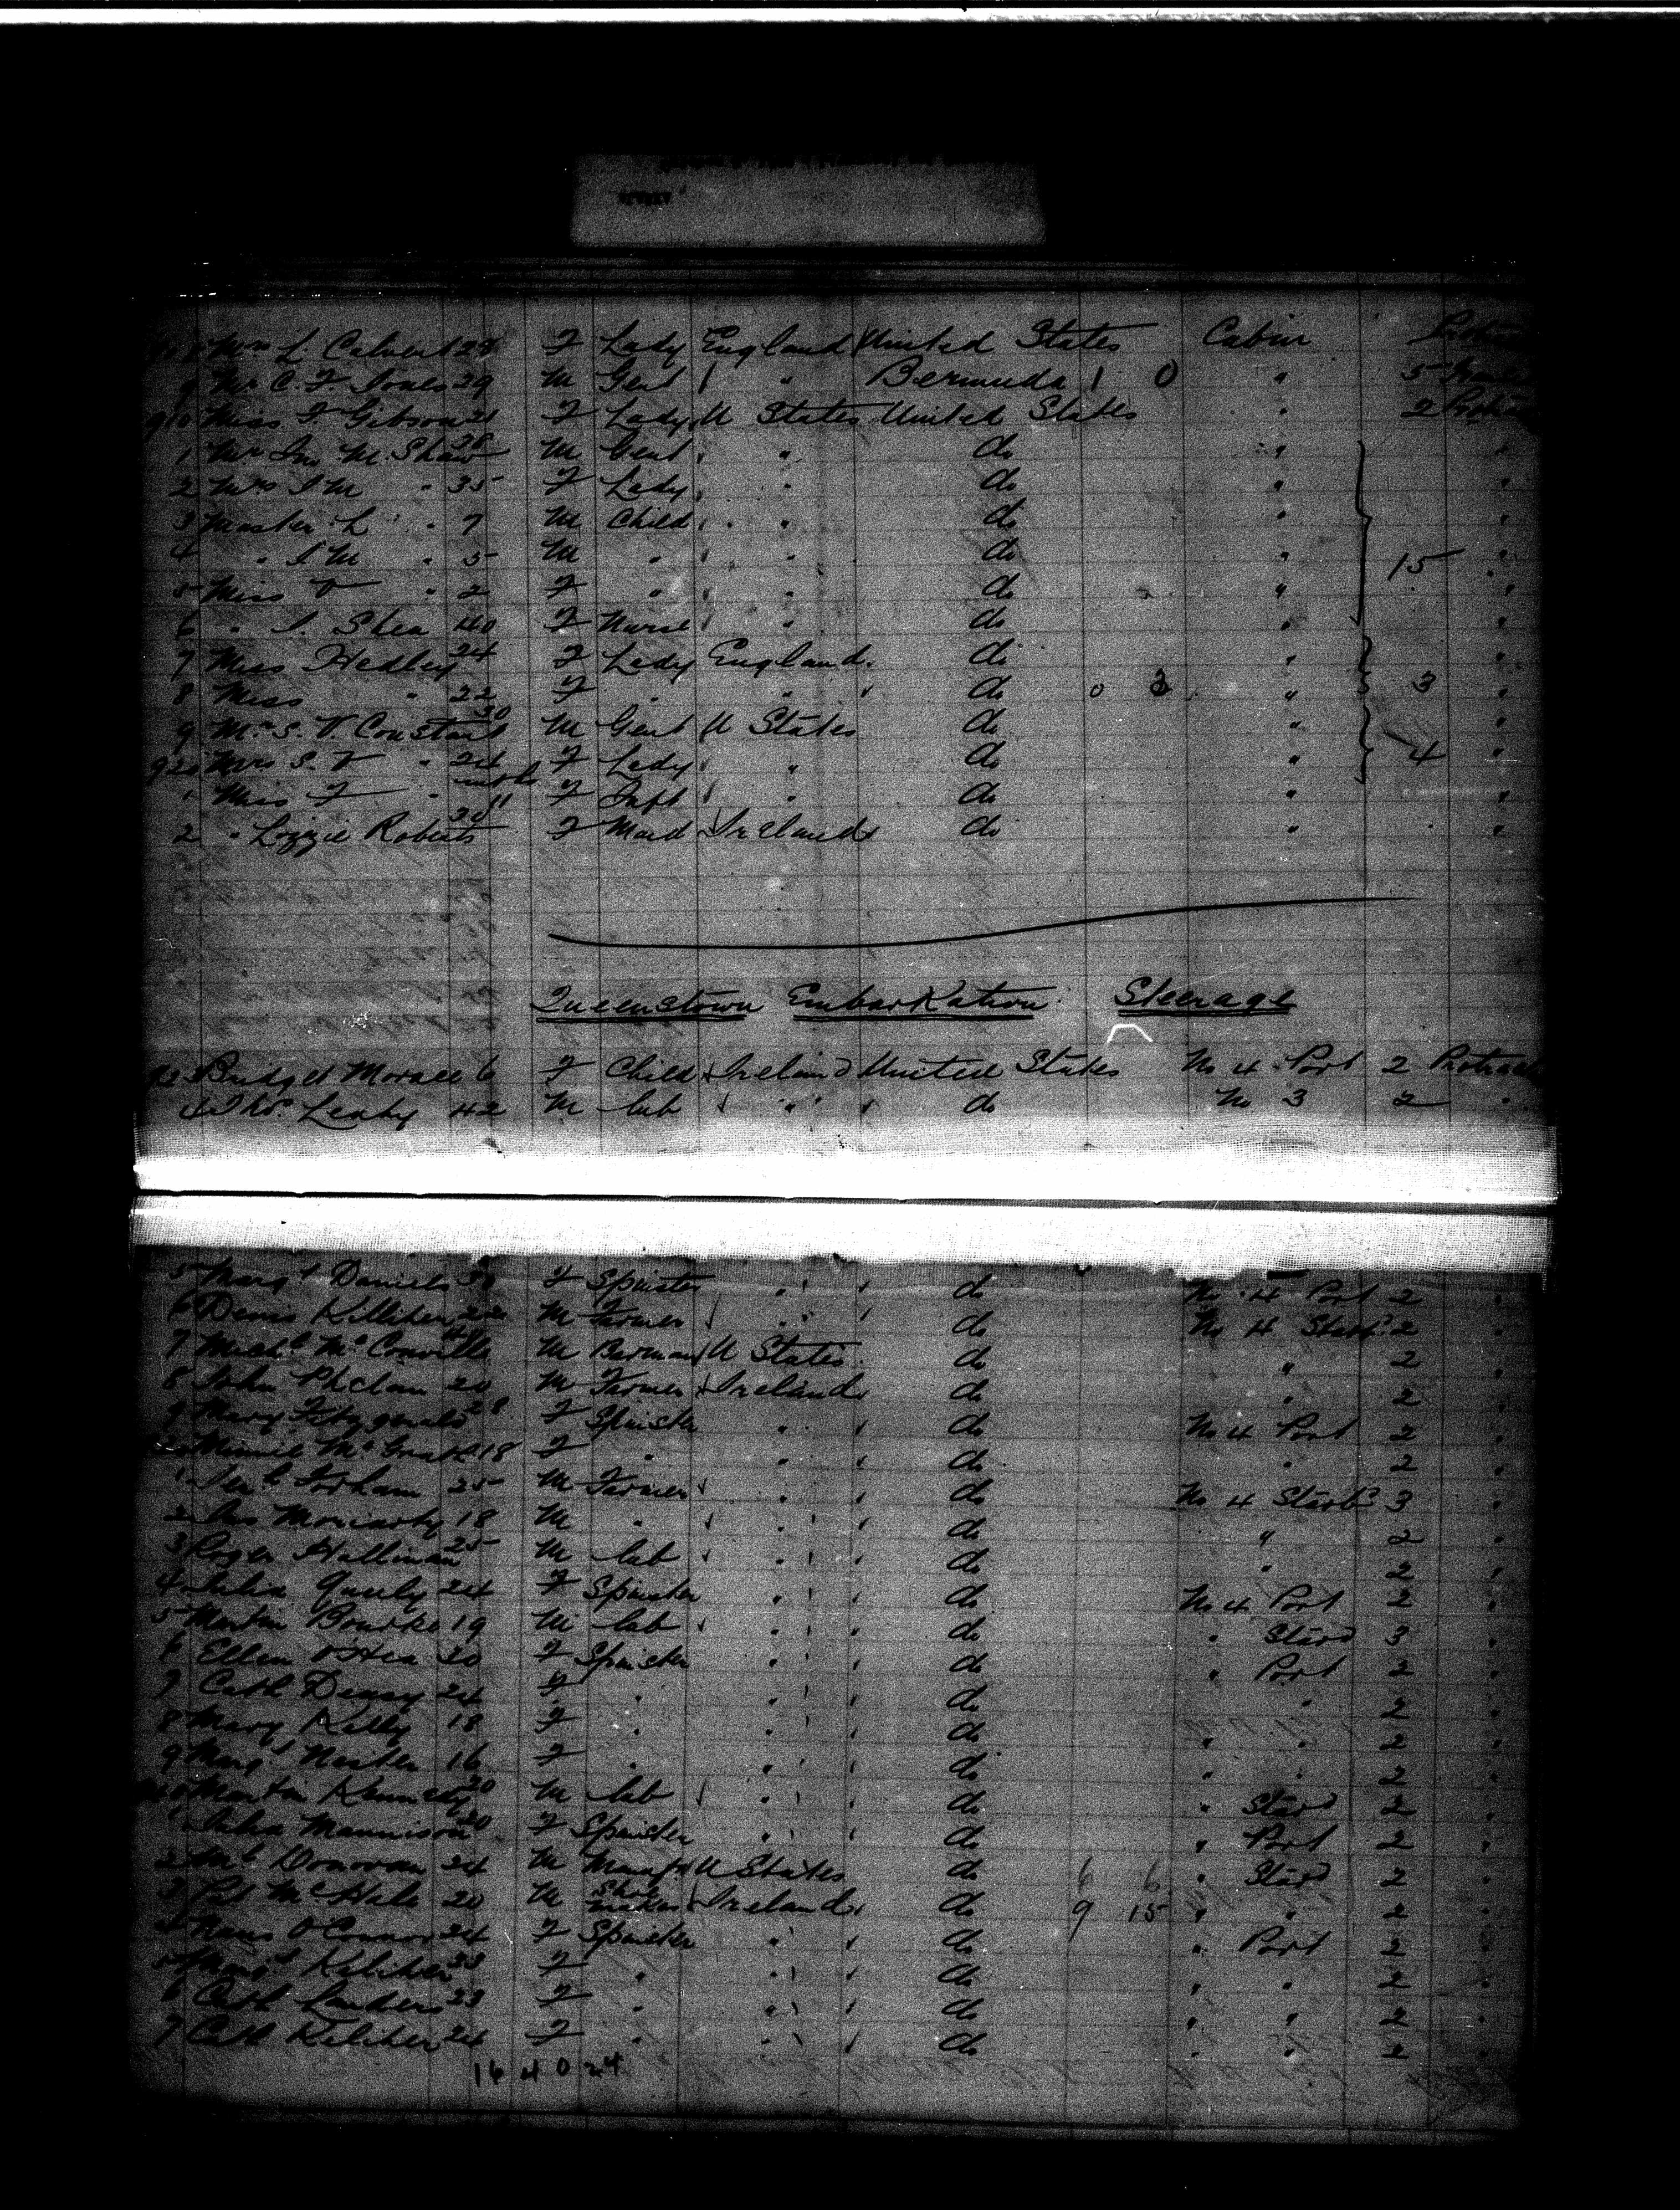 8 Mrs L. Calvert 28 F Lady England United States Cabin
9 Mr C. F Jones 29 M Gent " Bermuda 1 0 " 5
910 Miss F. Gibson 21 F Lady U States United States " 2
1 Mr Jno M. Shaw 38 M Gent " do "
2 Mrs J M " 35 F Lady " do " "
3 Master L " 7 M Child " do " "
4 " J M " 5 M " " do " 15 "
5 Miss V " 2 F " " do " "
6 " J. Shea 40 F Nurse " do " "
7 Miss Hedley 24 F Lady England do " "
8 Miss " 22 F " " do 0 3 " 3 "
9 Mr S. V. Constant 30 M Gent U States do " "
920 Mrs S. V " 24 F Lady " do " 4 "
1 Miss F " mths 11 F Inft " do " "
2 " Lizzie Roberts 20 F Maid Ireland do " "
Queenstown Embarkation Steerage
Bridget 6 F Child Ireland United States No 4 Port 2
4 Thos Leahy 42 M lab " do No 3 2 "
5 Margt Daniels F Spinster " do No 4 Port 2 "
6 Denis Kelliher 22 M Farmer " do No 4 Starbd 2 "
7 Michl McConville M Barman U States do " 2
8 John Phelan 20 M Farmer Ireland do " 2 "
9 Mary Fitzgerald 28 F Spinster " do No 4 Port 2 "
Minnie McGrath 18 F " " do " 2 "
1 Fordham 25 M Farmer " do No 4 Starbd 3 "
2 Jno Moriarty 18 M " " do " 2 "
3 Roger Hallinan 25 M lab " do " 2 "
4 Julia 24 F Spinster " do No 4 Port 2 "
5 Martin Bourke 19 M lab " do " Stard 3 "
6 Ellen O'Hea 20 F Spinster " do " Port 2 "
7 Cath Deasy 24 F " " do " 2 "
8 Mary Kelly 18 F " " do " " 2 "
9 Margt 16 F " " do " " 2 "
Martin Kennedy 20 M lab " do " Stard 2 "
1 Julia Mannison 20 F Spinster " do " Port 2 "
2 Donovan 24 M U States do 6 6 " Stard 2 "
3 Pat McHale 20 M Shoe maker Ireland do 9 15 " " 2 "
4 O'Connor 24 F Spinster " do " Port 2 "
5 Margt Keliher F " " do " " 2 "
6 Cath Landers 23 F " " do " " 2 "
7 Cath Keliher 24 F " " do " " 2 "
16 4 0 24